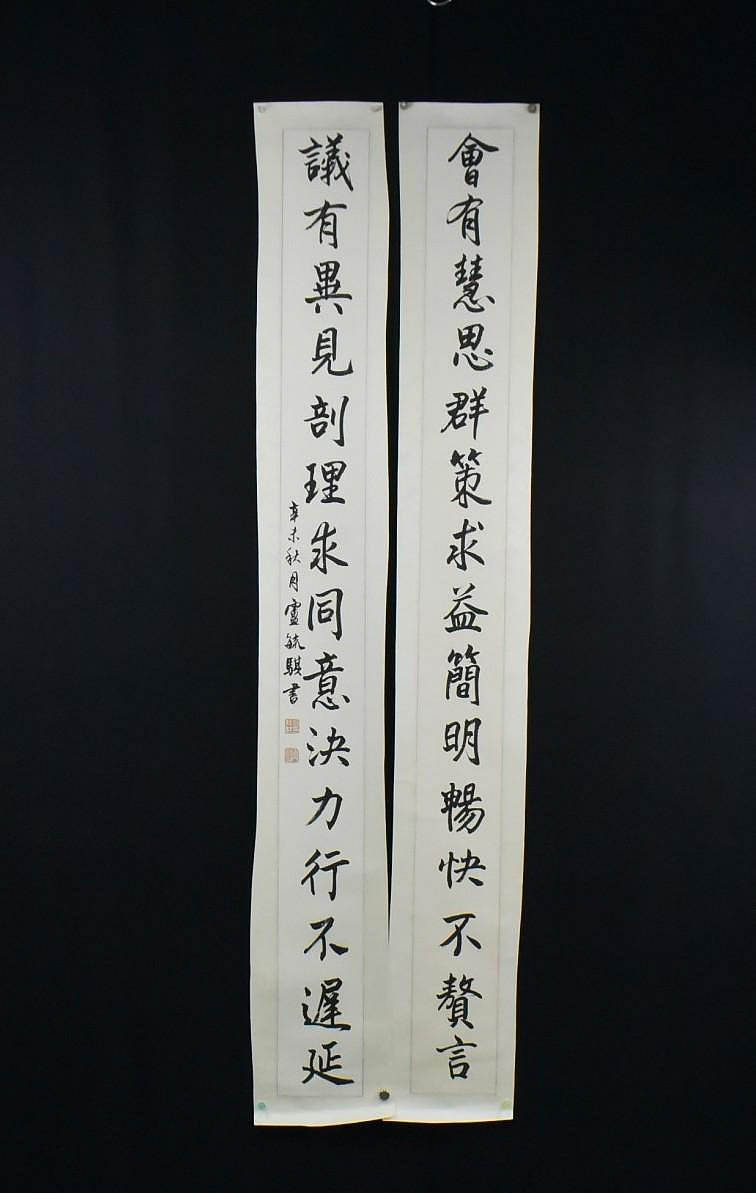 會有慧思群策求益簡明暢快不贅言
議有異見剖理求同意決力行不遲延
辛未秋月盧毓騏書